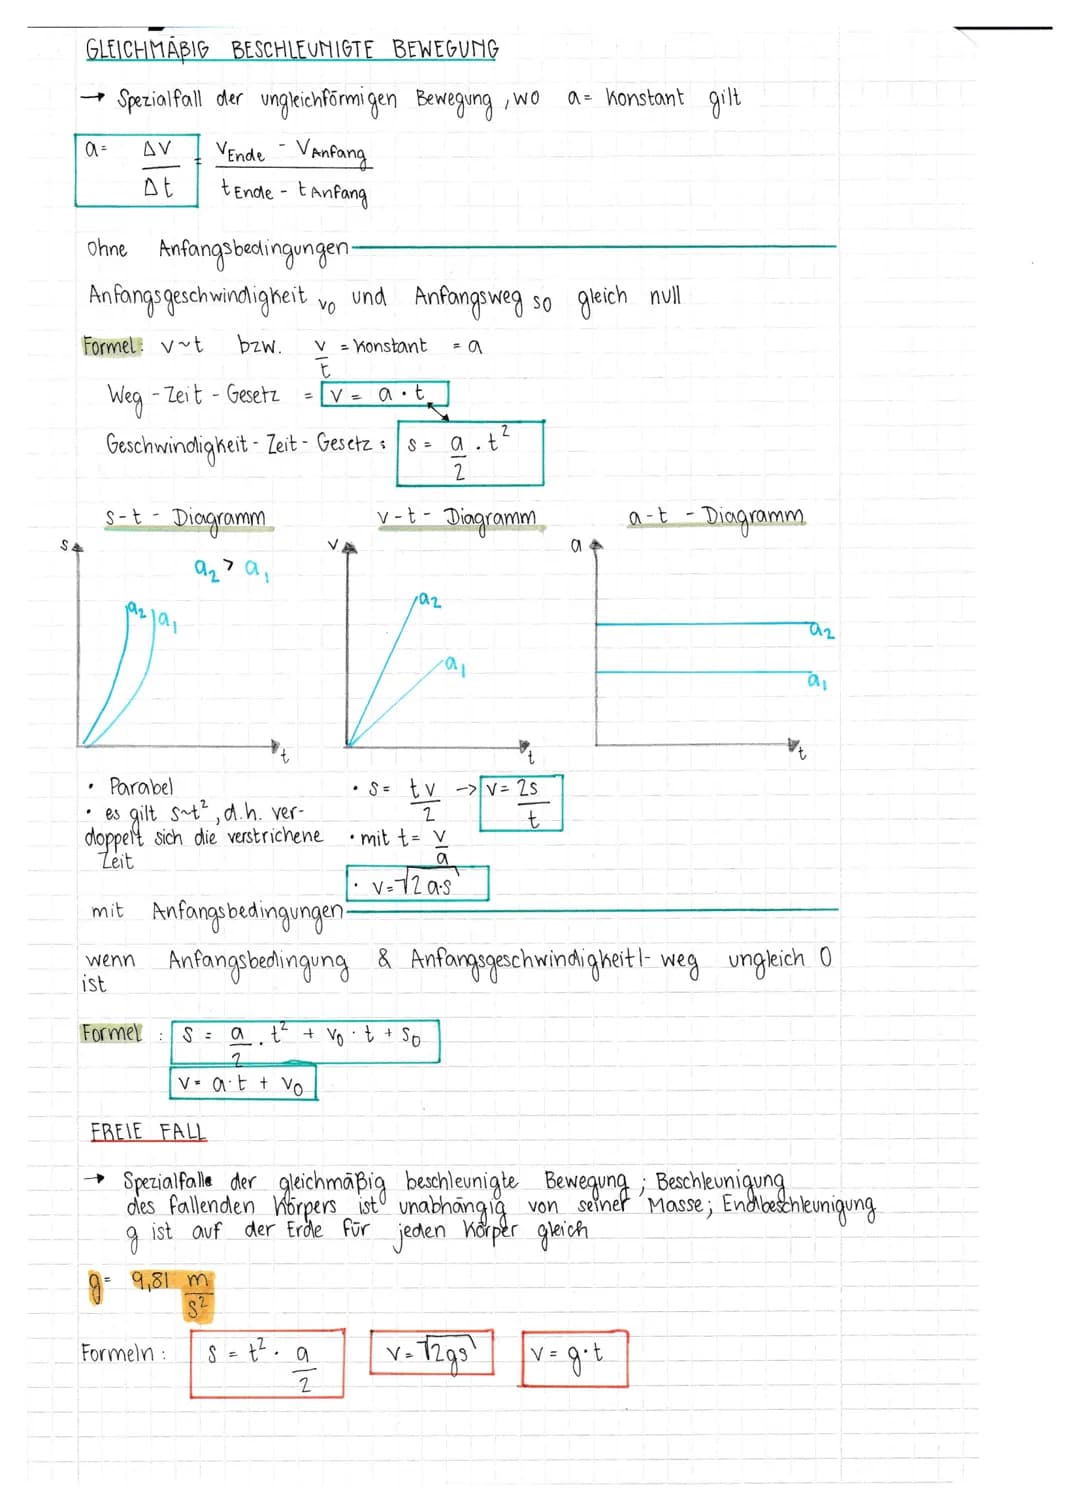 GLEICHMÄßIG BESCHLEUNIGTE BEWEGUNG
→ Spezialfall der ungleichförmigen Bewegung, wo a = konstant gilt
a = Δv/Δt = (vEnde - vAnfang)/(tEnde - tAnfang)
ohne Anfangsbedingungen
Anfangsgeschwindigkeit v0 und Anfangsweg s0 gleich null
Formel: v~t bzw. v/t = konstant = a
Weg - Zeit - Gesetz = v = a · t
Geschwindigkeit - Zeit - Gesetz : s = a/2 · t²
s-t - Diagramm
v-t - Diagramm
a-t - Diagramm
s
a2 > a1
a2
a1
t
v
a2
a1
t
a
a2
a1
t
• Parabel
• es gilt s~t², d.h. ver-
doppelt sich die verstrichene
Zeit
• s = tv/2 -> v = 2s/t
• mit t = v/a
• v = √2a·s
mit Anfangsbedingungen
wenn Anfangsbedingung & Anfangsgeschwindigheit/- weg ungleich 0
ist
Formel : s = a/2 · t² + v0 · t + s0
v = a·t + v0
FREIE FALL
→ Spezialfalle der gleichmäßig beschleunigte Bewegung ; Beschleunigung
des fallenden Körpers ist unabhängig von seiner Masse; Endbeschleunigung
g ist auf der Erde für jeden Körper gleich
g = 9,81 m/s²
Formeln : s = t² · a/2 v = √2gs v = g·t